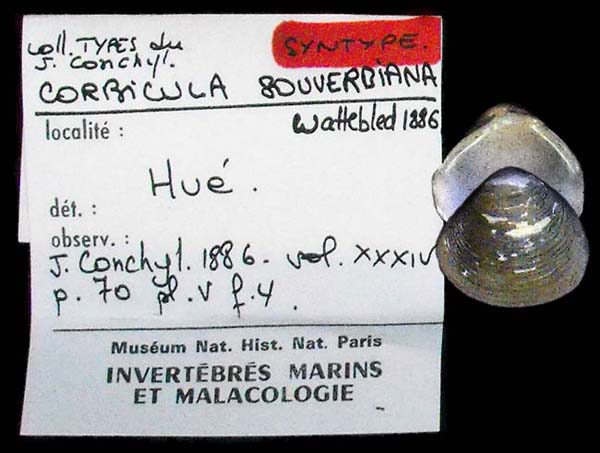 coll. TYPES du
J. Conchyl.
SYNTYPE.
CORBICULA SOUVERBIANA
Wattebled 1886
localité :
Hué.
dét. :
observ. :
J. Conchyl. 1886. vol. XXXIV
p. 70 pl. V f. 4.
Muséum Nat. Hist. Nat. Paris
INVERTÉBRÉS MARINS
ET MALACOLOGIE